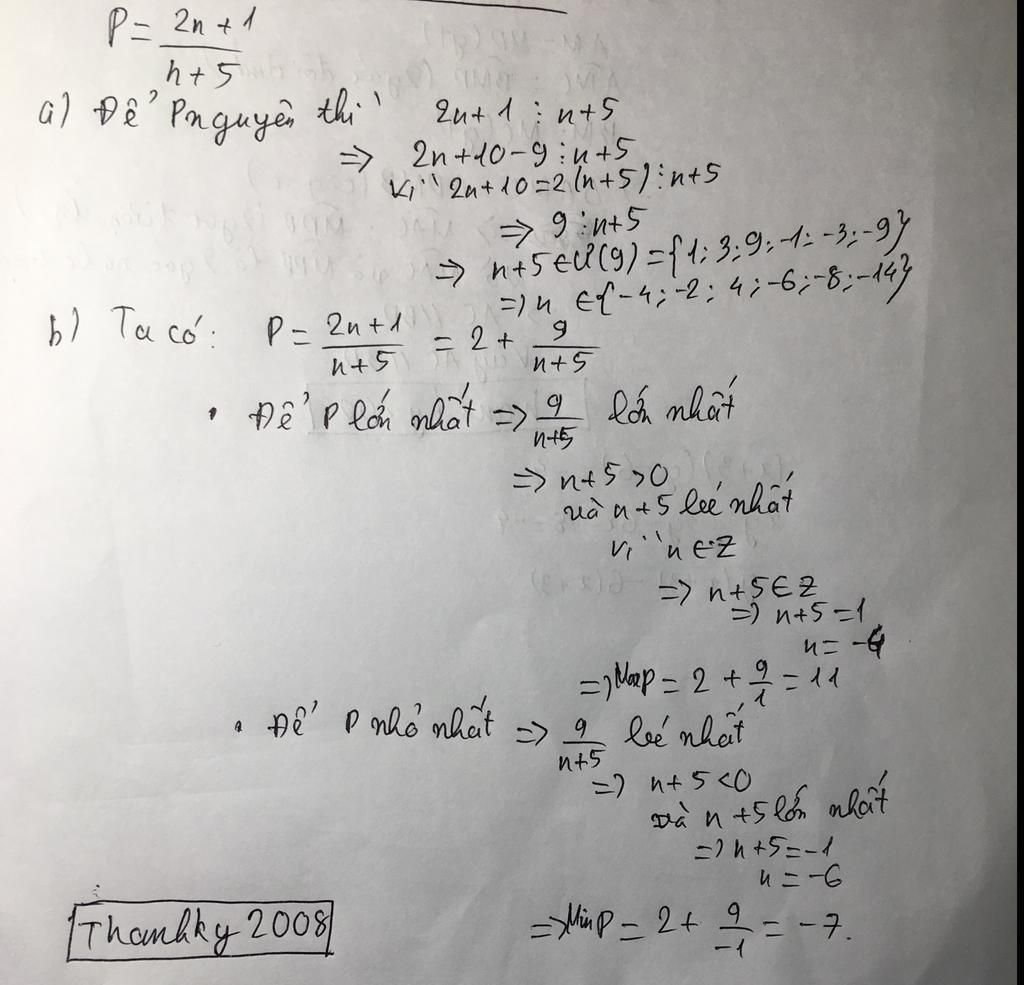 P = (2n + 1)/(n + 5)
a) Để P nguyên thì 2n + 1 ⋮ n + 5
=> 2n + 10 - 9 ⋮ n + 5
Vì 2n + 10 = 2(n + 5) ⋮ n + 5
=> 9 ⋮ n + 5
=> n + 5 ∈ Ư(9) = {1; 3; 9; -1; -3; -9}
=> n ∈ {-4; -2; 4; -6; -8; -14}
b) Ta có: P = (2n + 1)/(n + 5) = 2 + 9/(n + 5)
• Để P lớn nhất => 9/(n + 5) lớn nhất
=> n + 5 > 0
và n + 5 bé nhất
Vì n ∈ Z
=> n + 5 ∈ Z
=> n + 5 = 1
n = -4
=> Max P = 2 + 9/1 = 11
• Để P nhỏ nhất => 9/(n + 5) bé nhất
=> n + 5 < 0
và n + 5 lớn nhất
=> n + 5 = -1
n = -6
=> Min P = 2 + 9/-1 = -7.
Thanhky 2008